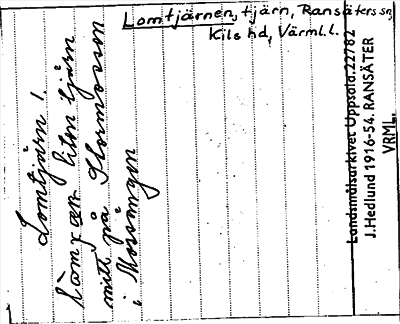 Lomtjärnen, tjärn, Ransäters sn,
Kils hd, Värml. l.
Lomtjärn!
liten tjärn
mitt på Stormossen
i Mossängen
Landsmålsarkivet Uppsala.22782
J.Hedlund 1916-54. RANSÄTER
VRML.